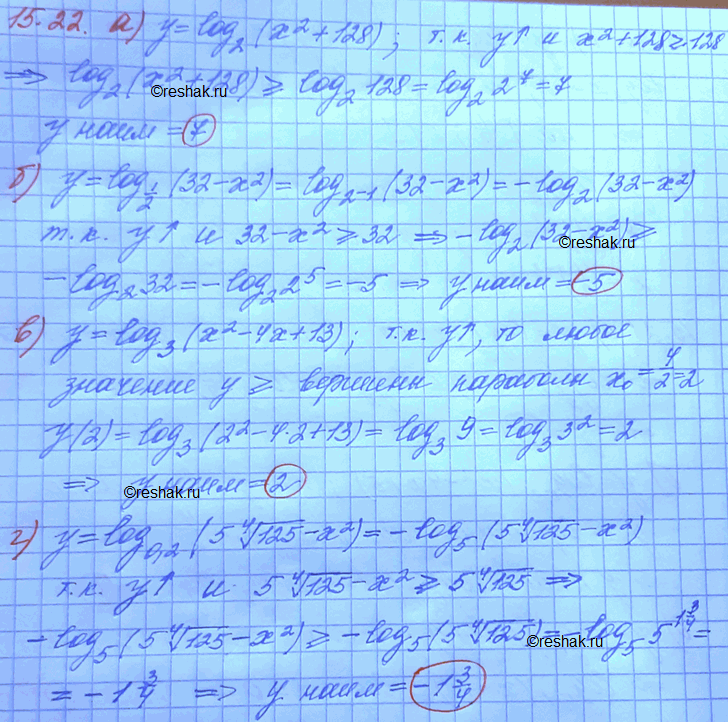 15.22. а) y = log₂ (x² + 128); т.к. y↑ и x² + 128 ≥ 128
⇒ log₂ (x² + 128) ≥ log₂ 128 = log₂ 2⁷ = 7
©reshak.ru
y наим = 7
б) y = log_{1/2} (32 - x²) = log_{2-1} (32 - x²) = -log₂ (32 - x²)
т.к. y↑ и 32 - x² ≥ 32 ⇒ -log₂ (32 - x²) ≥
©reshak.ru
-log₂ 32 = -log₂ 2⁵ = -5 ⇒ y наим = -5
в) y = log₃ (x² - 4x + 13); т.к. y↑, то любое
значение y ≥ вершины параболы x₀ = 4/2 = 2
y(2) = log₃ (2² - 4·2 + 13) = log₃ 9 = log₃ 3² = 2
⇒ y наим = 2
©reshak.ru
г) y = log_{0,2} (5 ⁴√125 - x²) = -log₅ (5 ⁴√125 - x²)
т.к. y↑ и 5 ⁴√125 - x² ≥ 5 ⁴√125 ⇒
-log₅ (5 ⁴√125 - x²) ≥ -log₅ (5 ⁴√125) = -log₅ 5^{1 3/4} =
©reshak.ru
= -1 3/4 ⇒ y наим = -1 3/4